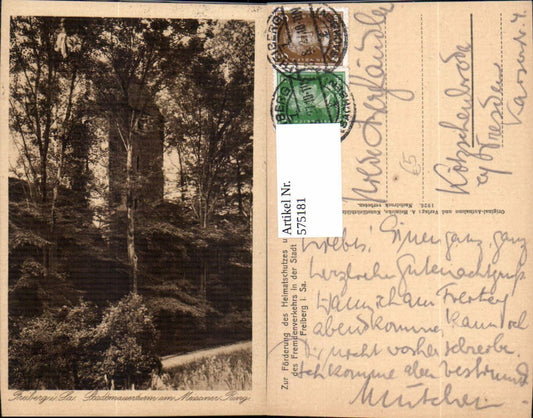 Freiberg i. Sa. Stadtmauerturm am Meissner Ring
FREIBERG
SACHSEN
Artikel Nr.
575181
Zur Förderung des Heimatschutzes u
des Fremdenverkehrs in der Stadt
Freiberg i. Sa.
Original-Aufnahme und Verlag: A. Kunstanstalt
1926. Nachdruck verboten.
Kötzschenbroda
b/ Dresden
Karserstr. 4
65
Liebes! Einen ganz, ganz
herzlichen Gutenachtgruß
Wann ich am Freitag
abend komme, kann ich
Dir nicht vorher schreiben.
Ich komme aber bestimmt